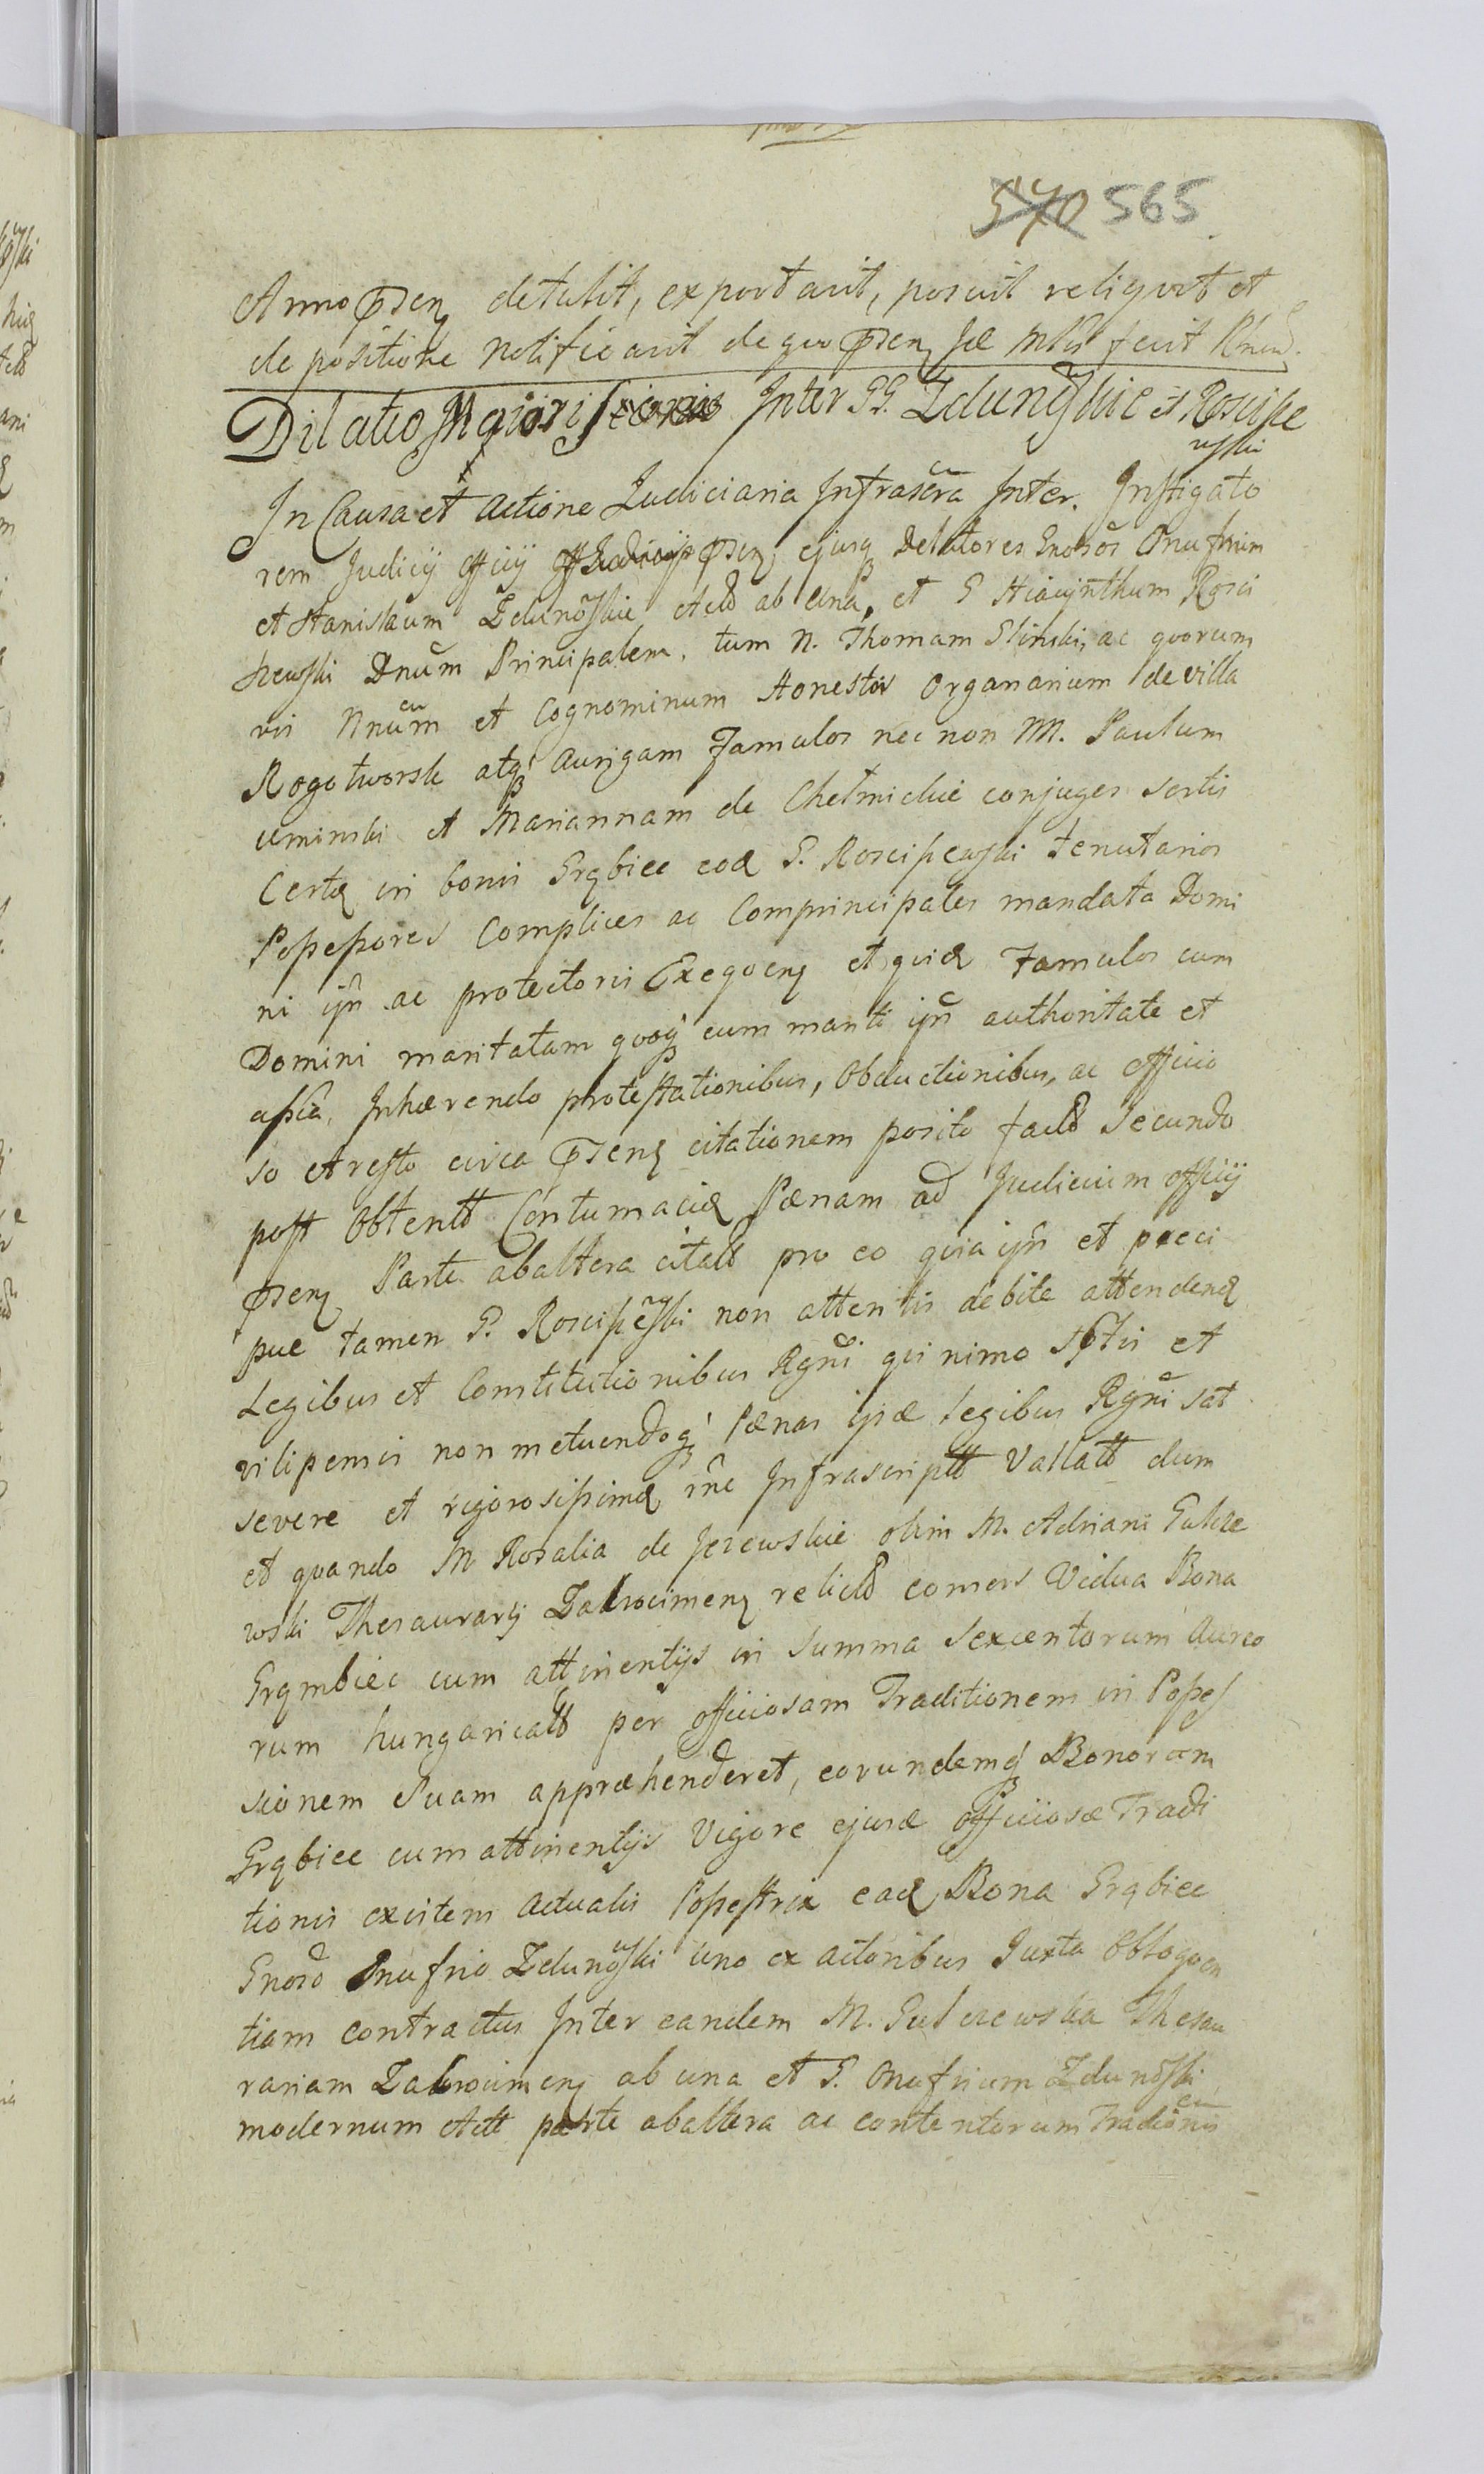 570 565
Anno prsen detulit, exportavit, posuit reliquit et
de positione notificavit de quo prsen se mltr fecit Rnem.
Dilatio Majori Inter GG. Zdunoskie et Roscisze
wski
In Causa et actione Judiciaria Infrascra Inter. Instigato
rem Judicij officij prsen, ejusq Delatores Gnosos Onufrium
et Stanislaum Zdunoskie Acto ab una, et G Hiacynthum Rosci
szewski Dnum Principalem, tum N. Thomam Slinski, ac quorum
vis Nnum et Cognominum Honestos Organarium de villa
Rogotworsk atq Aurigam Famulos nec non M. Paulum
uminski et Mariannam de Chelmickie conjuges sortis
Certæ in bonis Grqbiec eod G. Rosciszewski tenutarios
Possessores Complices ac Comprincipales mandata Domi
ni ipn ac protectoris Exequen et quid Famulos cum
Domini maritatam quoq cum mariti ipn authoritate et
assia, Inhærendo protestationibus, Obductionibus, ac officio
so Aresto circa prsen citationem posito facto Secundo
post Obtentt Contumaciæ Pænam ad Judicium officij
prsen Parte abaltera citatt pro eo quia ipn et præci
pue tamen G. Roscisseski non attentis debite attendend
Legibus et Constitutionibus Rgni qui nimo sptis et
vilipensis non metuendoq Pænas ipsæ legibus Rgni sat
severe et rigorosissimæ rne Infrascriptt Vallatt dum
et quando M Rosalia de Jezewskie olim M. Adriani Gulcze
wski Thesaurarij Zakrocimen relicto consors Vidua Bona
Grqmbiec cum attinentijs in Summa Sexcentorum Aureo
rum hungaricatt per officiosam Traditionem in Posses
sionem Suam appræhenderet, eorundemq Bonorum
Grqbiec cum attinentijs Vigore ejusd officiosæ Tradi
tionis existens Actualis Possestrix ead Bona Grqbiec
Gnoso Onufrio Zdunoski uno ex actoribus Juxta Obloquen
tiam contractus Inter eandem M. Gulczewska Thesau
rariam Zakrocimen ab una et G. Onufrium Zdunoski
modernum Actt parte abaltera ac contentorum Tradionis